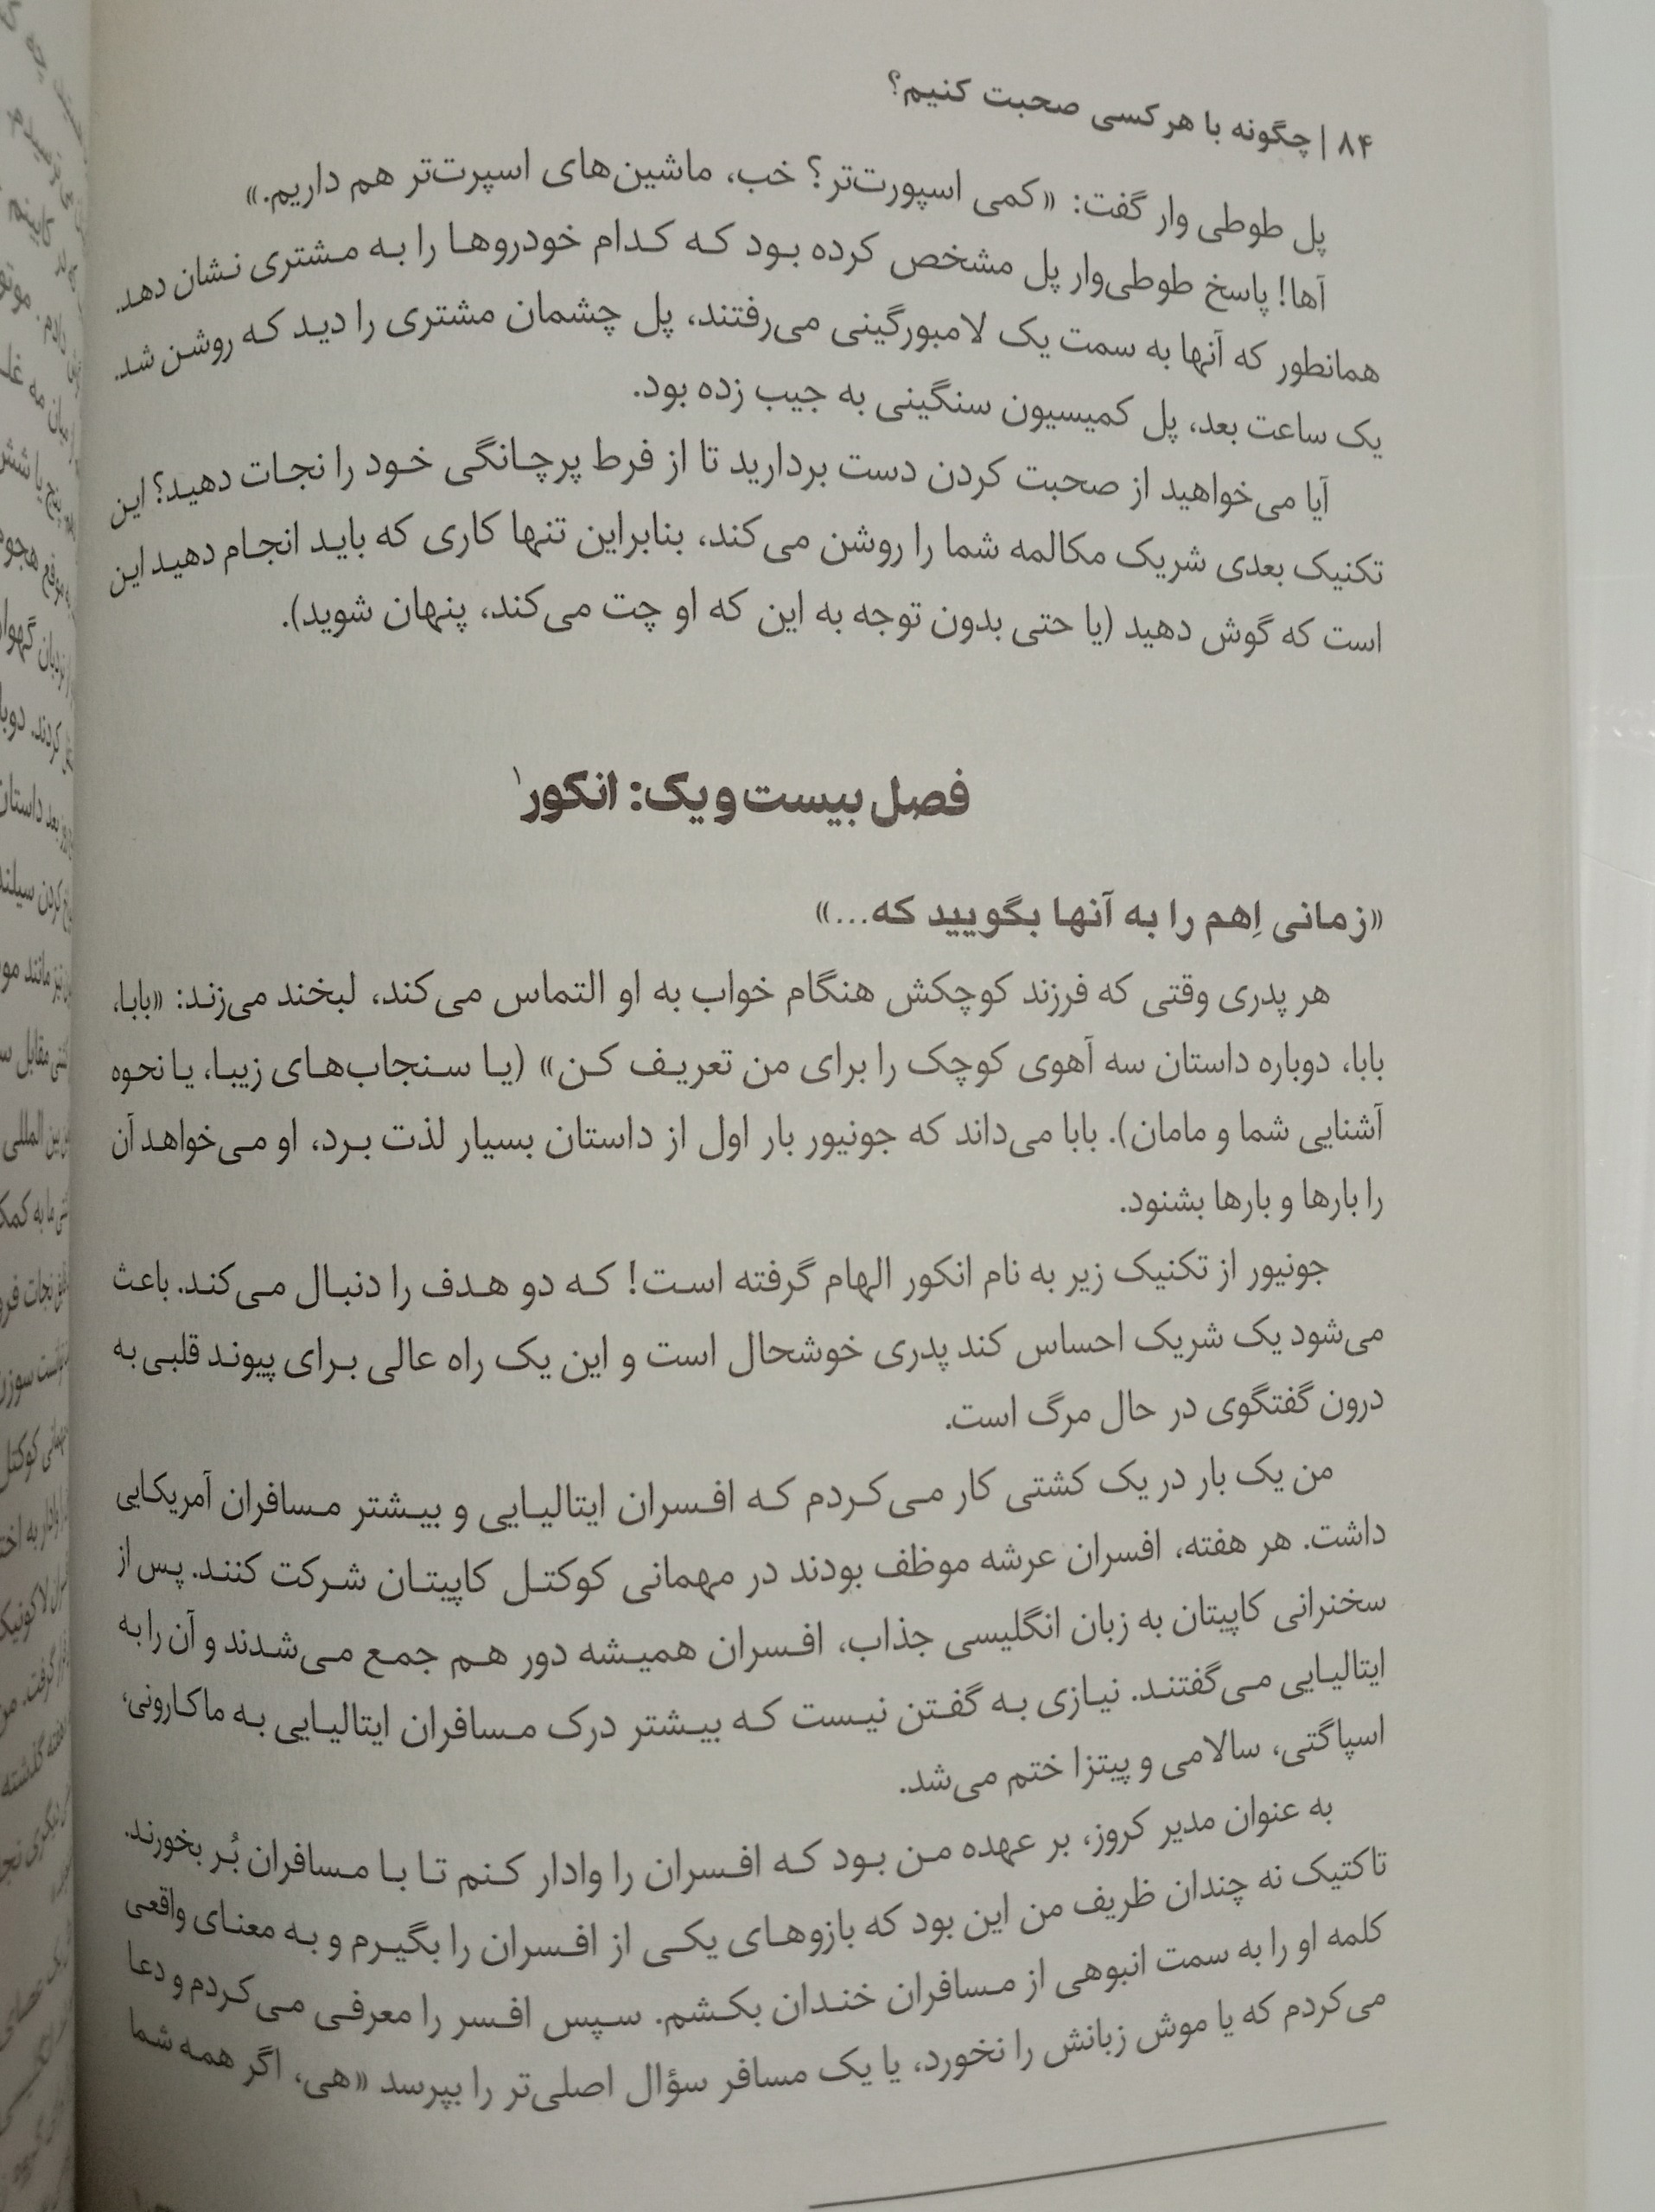 ۸۴ | چگونه با هر کسی صحبت کنیم؟
پل طوطی وار گفت: «کمی اسپورت‌تر؟ خب، ماشین‌های اسپرت‌تر هم داریم.»
آها! پاسخ طوطی‌وار پل مشخص کرده بود که کدام خودروها را به مشتری نشان دهد.
همانطور که آنها به سمت یک لامبورگینی می‌رفتند، پل چشمان مشتری را دید که روشن شد.
یک ساعت بعد، پل کمیسیون سنگینی به جیب زده بود.
آیا می‌خواهید از صحبت کردن دست بردارید تا از فرط پرچانگی خود را نجات دهید؟ این
تکنیک بعدی شریک مکالمه شما را روشن می‌کند، بنابراین تنها کاری که باید انجام دهید این
است که گوش دهید (یا حتی بدون توجه به این که او چت می‌کند، پنهان شوید).
فصل بیست و یک: انکور۱
«زمانی اِهم را به آنها بگویید که...»
هر پدری وقتی که فرزند کوچکش هنگام خواب به او التماس می‌کند، لبخند می‌زند: «بابا،
بابا، دوباره داستان سه آهوی کوچک را برای من تعریف کن» (یا سنجاب‌های زیبا، یا نحوه
آشنایی شما و مامان). بابا می‌داند که جونیور بار اول از داستان بسیار لذت برد، او می‌خواهد آن
را بارها و بارها بشنود.
جونیور از تکنیک زیر به نام انکور الهام گرفته است! که دو هدف را دنبال می‌کند. باعث
می‌شود یک شریک احساس کند پدری خوشحال است و این یک راه عالی برای پیوند قلبی به
درون گفتگوی در حال مرگ است.
من یک بار در یک کشتی کار می‌کردم که افسران ایتالیایی و بیشتر مسافران آمریکایی
داشت. هر هفته، افسران عرشه موظف بودند در مهمانی کوکتل کاپیتان شرکت کنند. پس از
سخنرانی کاپیتان به زبان انگلیسی جذاب، افسران همیشه دور هم جمع می‌شدند و آن را به
ایتالیایی می‌گفتند. نیازی به گفتن نیست که بیشتر درک مسافران ایتالیایی به ماکارونی،
اسپاگتی، سالامی و پیتزا ختم می‌شد.
به عنوان مدیر کروز، بر عهده من بود که افسران را وادار کنم تا با مسافران بُر بخورند.
تاکتیک نه چندان ظریف من این بود که بازوهای یکی از افسران را بگیرم و به معنای واقعی
کلمه او را به سمت انبوهی از مسافران خندان بکشم. سپس افسر را معرفی می‌کردم و دعا
می‌کردم که یا موش زبانش را نخورد، یا یک مسافر سؤال اصلی‌تر را بپرسد «هی، اگر همه شما